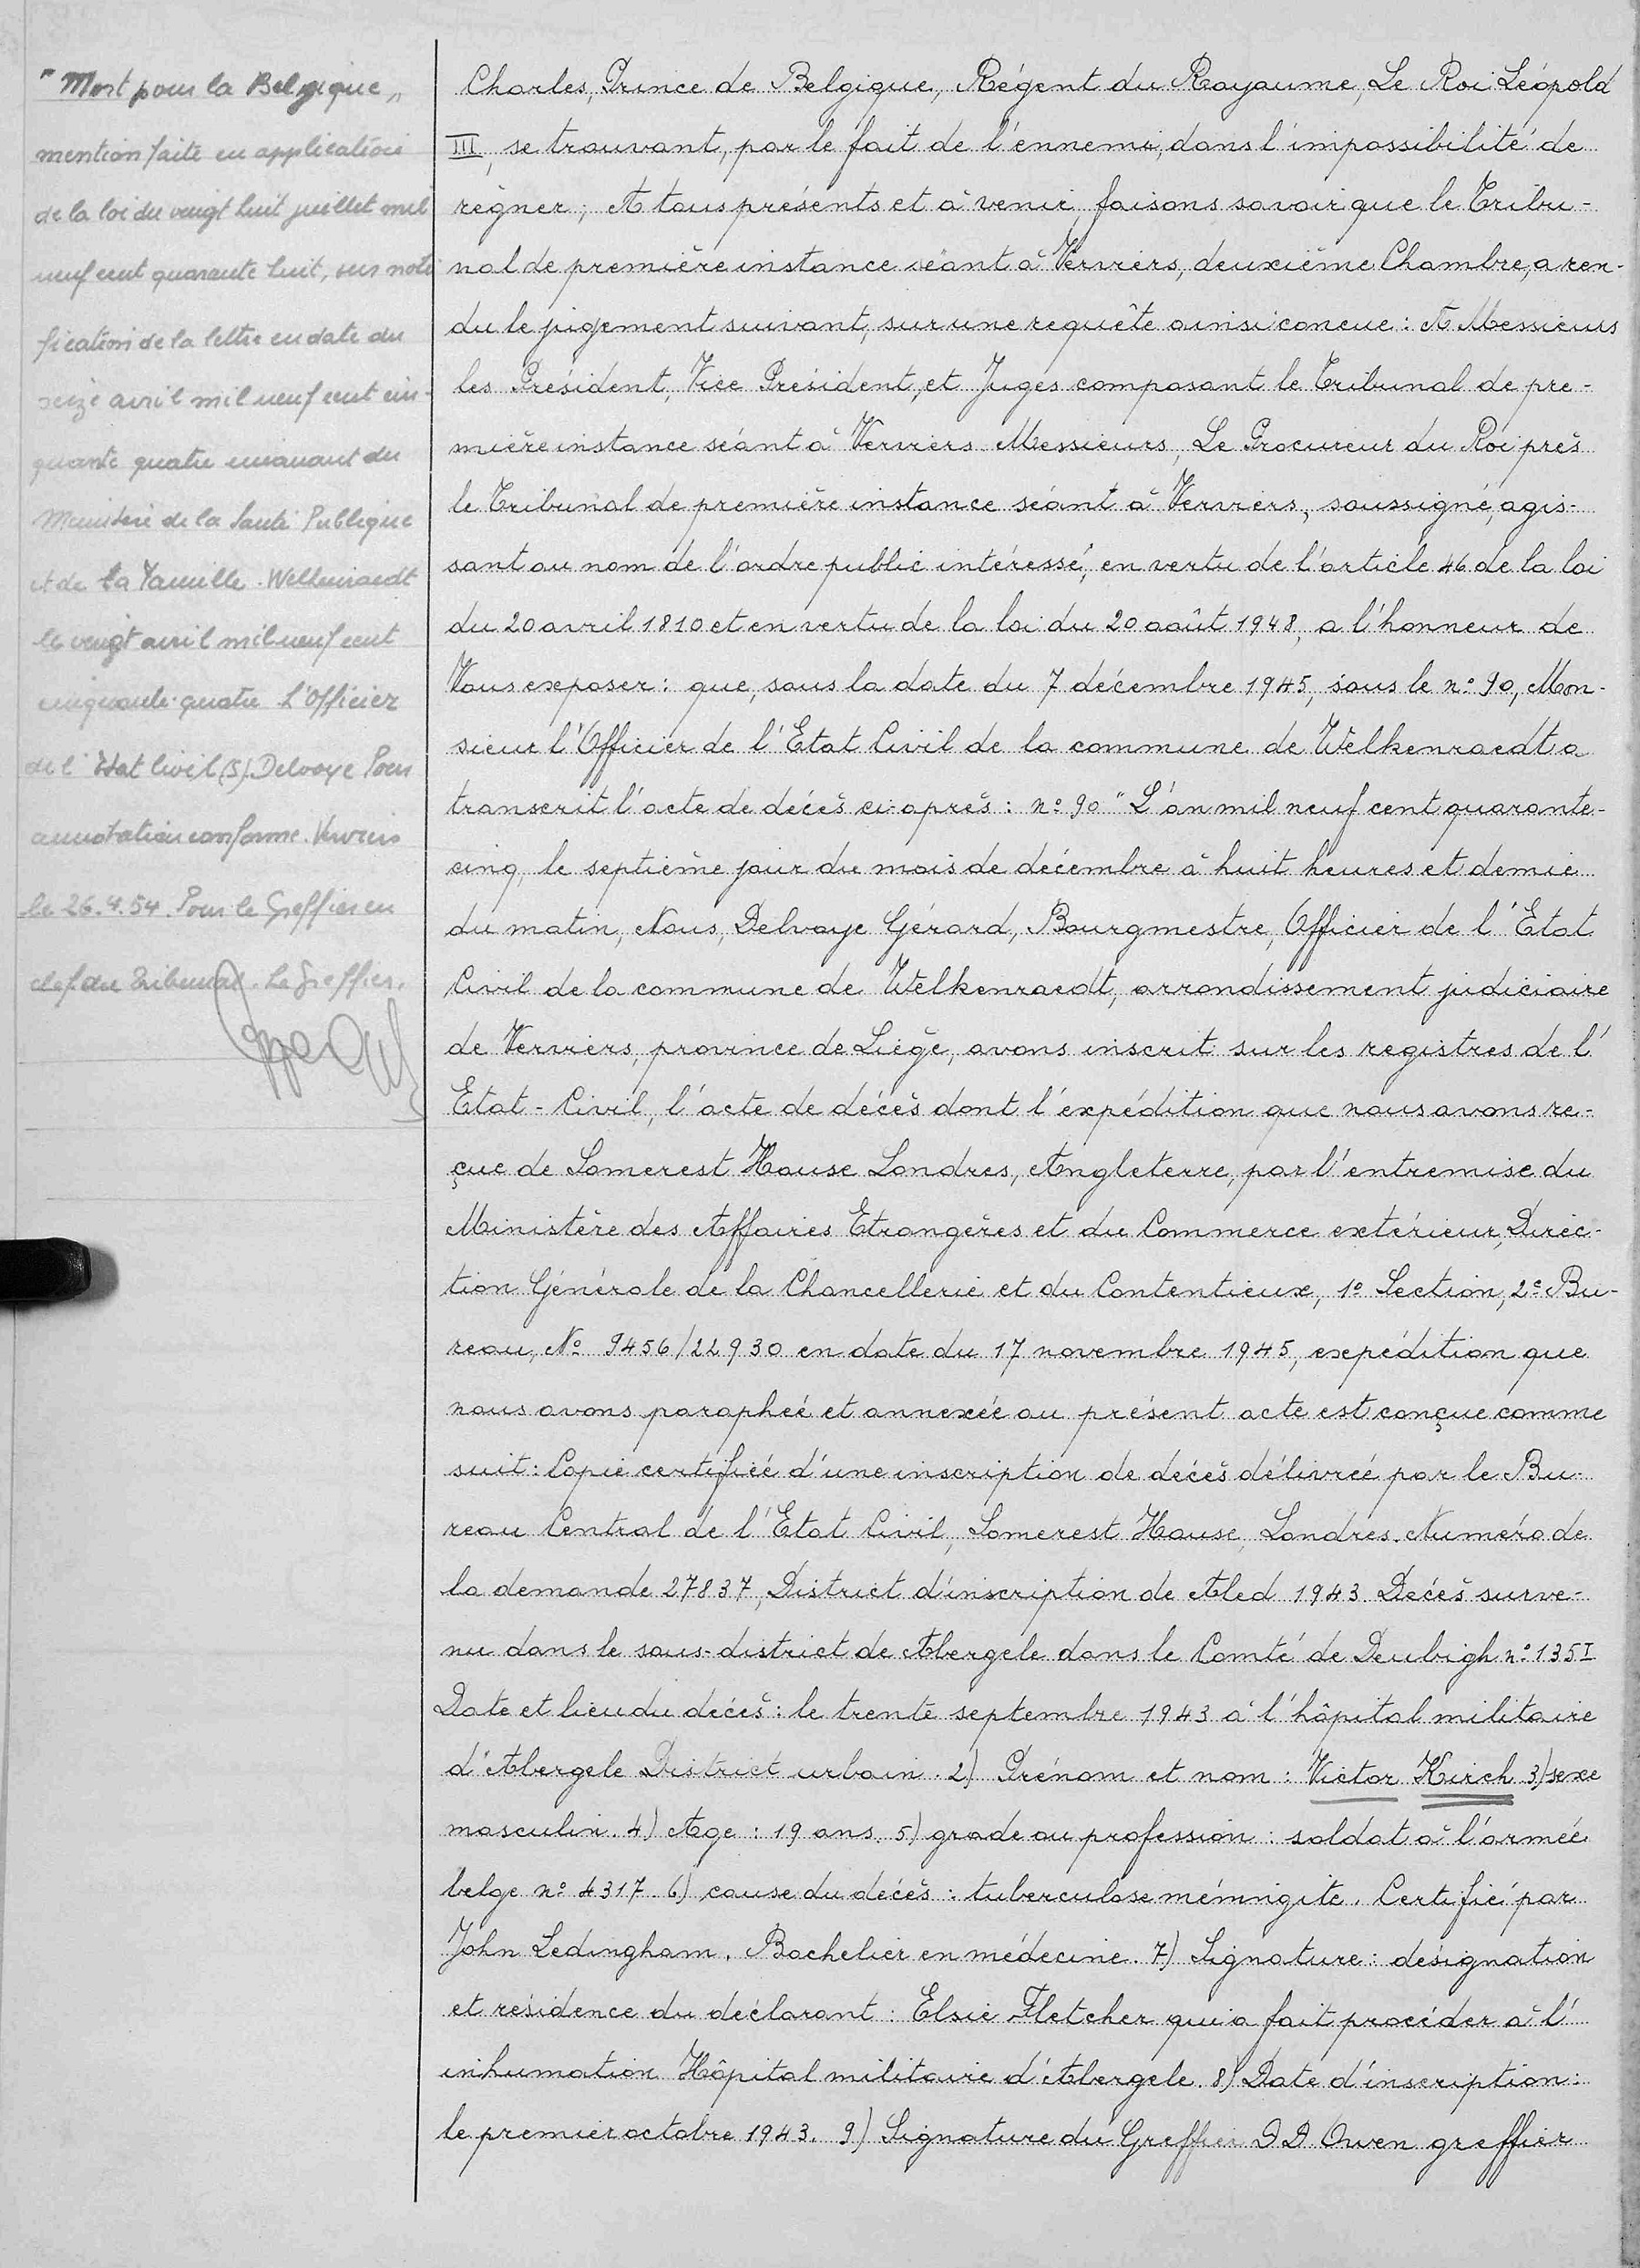 "Mort pour la Belgique"
mention faite en application
de la loi du vingt huit juillet mil
neuf cent quarante huit, sur noti
fication de la lettre en date du
seize avril mil neuf cent cin-
quante quatre émanant du
Ministère de la Santé Publique
et de la Famille. Welkenraedt
le vingt avril mil neuf cent
cinquante-quatre L'Officier
de l'Etat Civil (S). Delvoye Pour
annotation conforme. Verviers
le 26.4.54. Pour le Greffier en
chef du Tribunal. Le Greffier.
Charles, Prince de Belgique, Régent du Royaume, Le Roi Léopold
III, se trouvant, par le fait de l'ennemi, dans l'impossibilité de
règner; A tous présents et à venir faisons savoir que le Tribu-
nal de première instance séant à Verviers, deuxième Chambre, a ren-
du le jugement suivant, sur une requête ainsi concue: A Messieurs
les Président, Vice Président, et Juges composant le Tribunal de pre-
mière instance séant à Verviers Messieurs, Le Procureur du Roi près
le Tribunal de première instance séant à Verviers, soussigné, agis-
sant au nom de l'ordre public intéressé, en vertu de l'article 46 de la loi
du 20 avril 1810 et en vertu de la loi du 20 août 1948, a l'honneur de
Vous exposer: que, sous la date du 7 décembre 1945, sous le n° 90, Mon-
sieur l'Officier de l'Etat Civil de la commune de Welkenraedt a
transcrit l'acte de décès ci-après: n° 90 "L'an mil neuf cent quarante-
cinq, le septième jour du mois de décembre à huit heures et demie
du matin, Nous, Delvoye Gérard, Bourgmestre, Officier de l'Etat
Civil de la commune de Welkenraedt, arrondissement judiciaire
de Verviers, province de Liège, avons inscrit sur les registres de l'
Etat-Civil, l'acte de décès dont l'expédition que nous avons re-
çue de Somerest House Londres, Angleterre, par l'entremise du
Ministère des Affaires Etrangères et du Commerce extérieur, Direc-
tion Générale de la Chancellerie et du Contentieux, 1° Section, 2e Bu-
reau, N° 9456/22930 en date du 17 novembre 1945, expédition que
nous avons paraphée et annexée au présent acte est conçue comme
suit: Copie certifiée d'une inscription de décès délivrée par le Bu-
reau Central de l'Etat Civil, Somerest House, Londres. Numéro de
la demande 27837, District d'inscription de Aled 1943 Décès surve-
nu dans le sous-district de Abergele dans le Comté de Deubigh n° 135 I
Date et lieu du décès: le trente septembre 1943 à l'hôpital militaire
d'Abergele District urbain. 2) Prénom et nom: Victor Kirch 3) sexe
masculin. 4) Age: 19 ans. 5) grade ou profession: soldat à l'armée
belge n° 4317 6) cause du décès: tuberculose méningite. Certifié par
John Ledingham. Bachelier en médecine. 7) Signature: désignation
et résidence du déclarant: Elsie Fletcher qui a fait procéder à l'
inhumation Hôpital militaire d'Abergele. 8) Date d'inscription:
le premier octobre 1943. 9) Signature du Greffier D D. Owen greffier